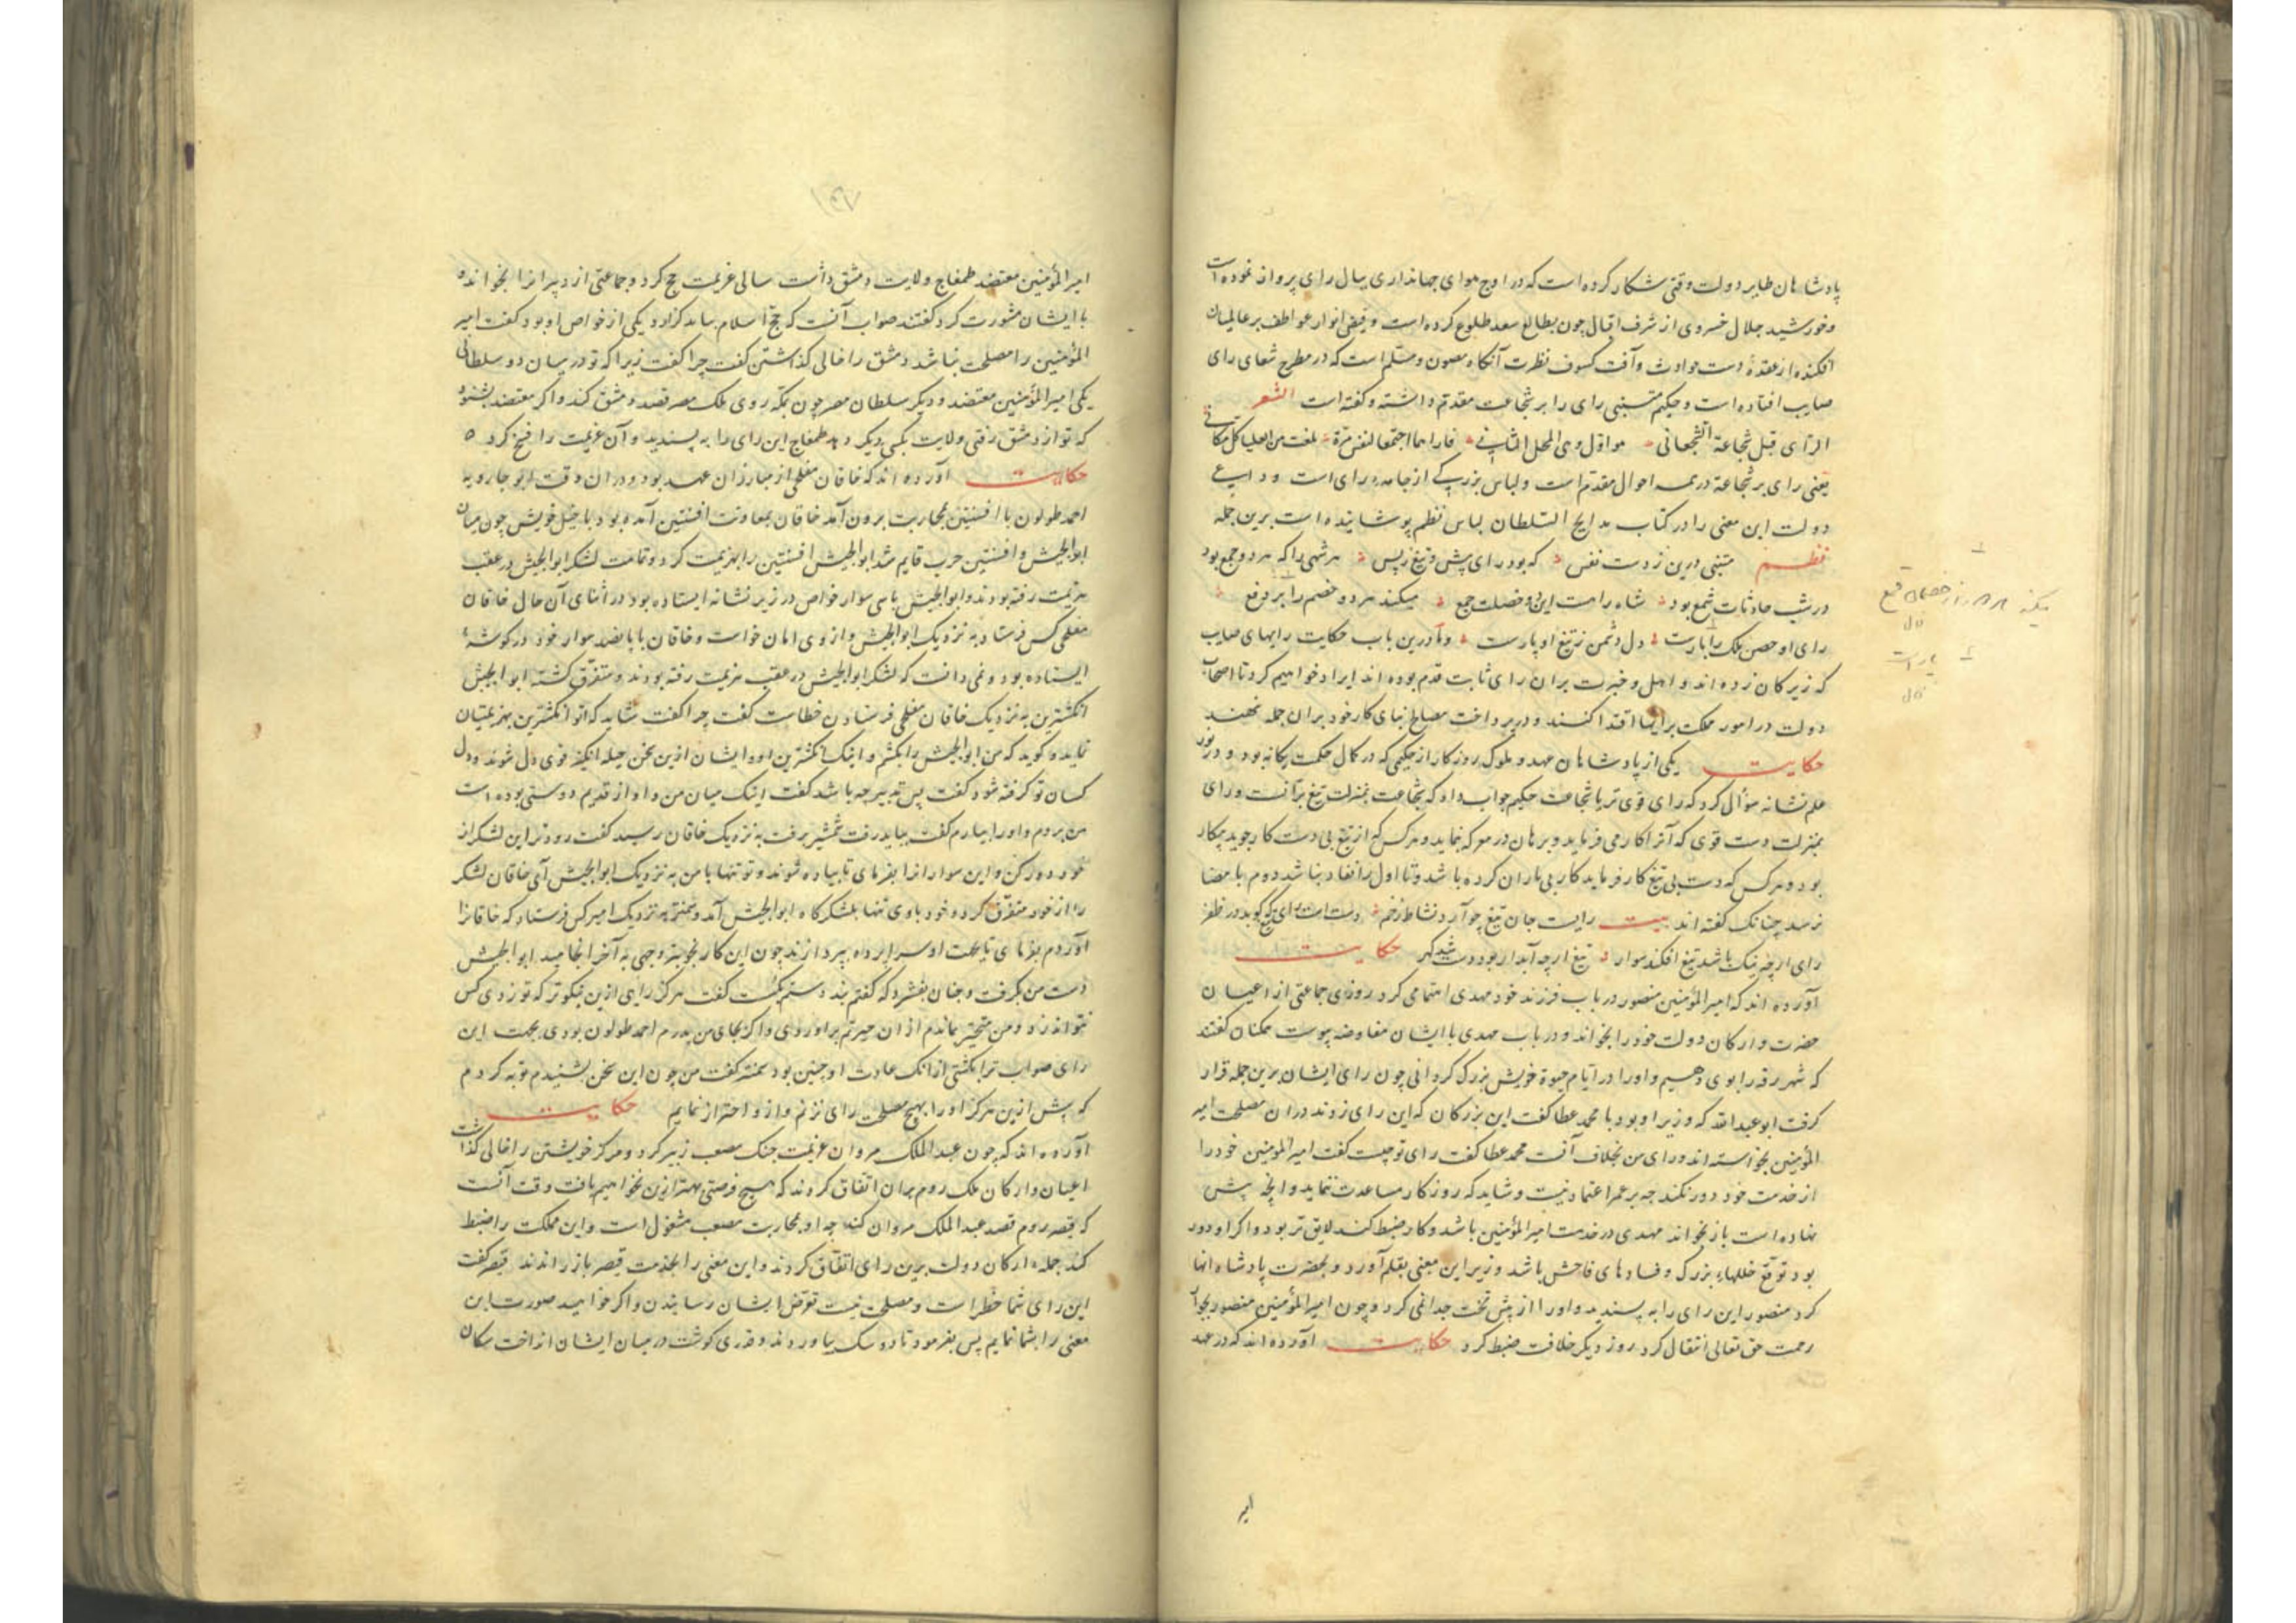 پادشاهان طایر دولت وقتی شکار کرده است که در اوج هوای جهانداری ببال رای پرواز نموده است
و خورشید جلال خسروی از شرف اقبال چون بطالع سعد طلوع کرده است و فیض انوار عواطف بر عالمیان
افکنده از عقدهٔ دست حوادث و آفت کسوف نظرت آنکاه مصون و مسلم است که در مطرح شعاع رای
صایب افتاده است و حکیم متنبی رای را بر شجاعت مقدم داشته و کفته است الشعر
الرای قبل شجاعة الشجعانی هو اول وهی المحل الثانی فاذا هما اجتمعا لنفس مرة بلغت من العلیا کل مکانی
یعنی رای بر شجاعة در همه احوال مقدم است و لباس بزرکی از جامهٔ رای است و داعی
دولت این معنی را در کتاب مدایح السلطان لباس نظم پوشانیده است برین جمله
نظم متنبی درین زدست نفس که بود رای پیش و تیغ زپس هر شهی را که هر دو جمع بود
در شب حادثات شمع بود شاه راهست این دو خصلت جمع میکند هر دو خصم را بر قمع
رای او حصن ملک را بارست دل دشمن زتیغ او پارست و ما درین باب حکایت رایهای صایب
که زیرکان زده اند و اهل و خبرت بران رای ثابت قدم بوده اند ایراد خواهیم کرد تا اصحاب
دولت در امور مملکت بر ایشان اقتدا کنند و در پرداخت مصالح بنای کار خود بران جمله نهند
حکایت یکی از پادشاهان عهد و ملوک روزکار از حکیمی که در کمال حکمت یکانه بود و در نور
علم نشانه سؤال کرد که رای قوی تر یا شجاعت حکیم جواب داد که شجاعت بمنزلت تیغ برآنست و رای
بمنزلت دست قوی که آنرا کار می فرماید و برهان در معرکه نماید و هرکس که از تیغ بی دست کار جوید بیکار
بود و هرکس که دست بی تیغ کار فرماید کار بی یاران کرده باشد و تا اول را نفاد نباشد دوم بامضا
نرسد چنانک کفته اند بیت رایت جان تیغ چو آرد نشاط زخم دست است رای تیغ که کوبد در ظفر
رای ارچه نیک باشد تیغ افکند سوار تیغ ارچه آبدار بود دست شد کهر حکایت
آورده اند که امیرالمؤمنین منصور در باب فرزند خود مهدی اهتمامی کرد روزی جماعتی از اعیان
حضرت و ارکان دولت خود را بخواند و در باب مهدی با ایشان مفاوضه پیوست همکنان کفتند
که شهر رقه را بوی دهیم و او را در ایام حیوة خویش بزرک کردانی چون رای ایشان برین جمله قرار
کرفت ابو عبدالله که وزیر او بود با محمد عطا کفت این بزرکان که این رای زدند دران مصلحت امیر
المؤمنین نخواسته اند و رای من بخلاف آنست محمد عطا کفت رای تو چیست کفت امیرالمؤمنین خود را
از خدمت خود دور نکند چه بر عمر اعتماد نیست و شاید که روزکار مساعدت ننماید و آنچه پیش
نهاده است باز نخواند مهدی در خدمت امیرالمؤمنین باشد و کار ضبط کند لایق تر بود و اکر او دور
بود توقع خللهاء بزرک و فسادهای فاحش باشد وزیر این معنی بقلم آورد و بحضرت پادشاه انها
کرد منصور این رای را به پسندید و او را از پیش تخت جدا نمی کرد و چون امیرالمؤمنین منصور بجوار
رحمت حق تعالی انتقال کرد روز دیکر خلافت ضبط کرد حکایت آورده اند که در عهد
امیر
امیرالمؤمنین معتضد طمغاج ولایت دمشق داشت سالی عزیمت حج کرد و جماعتی از دبیرانرا بخوانده
با ایشان مشورت کرد کفتند صواب آنست که حج اسلام بباید کزارد یکی از خواص او بود کفت امیر
المؤمنین را مصلحت نباشد دمشق را خالی کذاشتن کفت چرا کفت زیرا که تو در میان دو سلطانی
یکی امیرالمؤمنین معتضد و دیکر سلطان مصر چون بمکه روی ملک مصر قصد دمشق کند و اکر معتضد بشنود
که تو از دمشق رفتی ولایت بکسی دیکر دهد طمغاج این رای را به پسندید و آن عزیمت را فسخ کرد
حکایت آورده اند که خاقان مفلحی از مبارزان عهد بود و دران وقت ابو جارویه
احمد طولون با افشنین بمحاربت برون آمد خاقان بمعاونت افشنین آمده بود با خیل خویش چون میان
ابوالجیش و افشنین حرب قایم شد ابوالجیش افشنین را بهزیمت کرد و تمامت لشکر ابوالجیش در عقب
هزیمت رفته بودند و ابوالجیش با سی سوار خواص در زیر نشانه ایستاده بود در اثنای آن حال خاقان
مفلحی کس فرستاد به نزدیک ابوالجیش و از وی امان خواست و خاقان با پانصد سوار خود در کوشهٔ
ایستاده بود و نمی دانست که لشکر ابوالجیش در عقب هزیمت رفته بودند و متفرق کشته ابوالجیش
انکشترین به نزدیک خاقان مفلحی فرستادن خطاست کفت چرا کفت شاید که او انکشترین بهزیمتیان
نماید و کوید که من ابوالجیش را بکشتم و اینک انکشترین او و ایشان ازین سخن حیله انکیز قوی دل شوند و دل
کسان تو کرفته شود کفت پس تدبیر چه باشد کفت اینک میان من و او از قدیم دوستی بوده است
من بروم و او را بیارم کفت بباید رفت شمشیر برفت به نزدیک خاقان رسید کفت زودتر این لشکر از
خود دور کن و این سوارانرا بفرمای تا پیاده شوند و تو تنها با من به نزدیک ابوالجیش آی خاقان لشکر
را از خود متفرق کرد و خود با وی تنها بلشکرکاه ابوالجیش آمد و به نزدیک امیر کس فرستاد که خاقانرا
آوردم بفرمای تا بجهت او سراپرده بپردازند چون این کار بخوبتر وجهی به آخر انجامید ابوالجیش
دست من بکرفت و چنان بفشرد که کفتم بند دستم بکست کفت هرکز رایی ازین نیکوتر که تو زدی کس
نتواند زد و من متحیر بماندم از آن حیرتم برآوردی و اکر بجای من پدرم احمد طولون بودی بجهت این
رای صواب ترا بکشتی از انک عادت او چنین بود کفت من چون این سخن بشنیدم توبه کردم
که پیش ازین هرکز او را بهیچ مصلحت رای نزنم و ازو احتراز نمایم حکایت
آورده اند که چون عبدالملک مروان عزیمت جنک مصعب زبیر کرد و مرکز خویشتن را خالی کذاشت
اعیان و ارکان ملک روم بران اتفاق کردند که هیچ فرصتی بهتر ازین نخواهیم یافت وقت آنست
که قیصر روم قصد عبدالملک مروان کند چه او بمحاربت مصعب مشغول است و این مملکت را ضبط
کند جمله ارکان دولت برین رای اتفاق کردند و این معنی را بخدمت قیصر باز راندند قیصر کفت
این رای شما خطرا ست و مصلحت نیست تعرض ایشان رسانیدن و اکر خواهید صورت این
معنی را بشما نمایم پس بفرمود تا دو سک بیاوردند و قدری کوشت در میان ایشان انداخت سکان